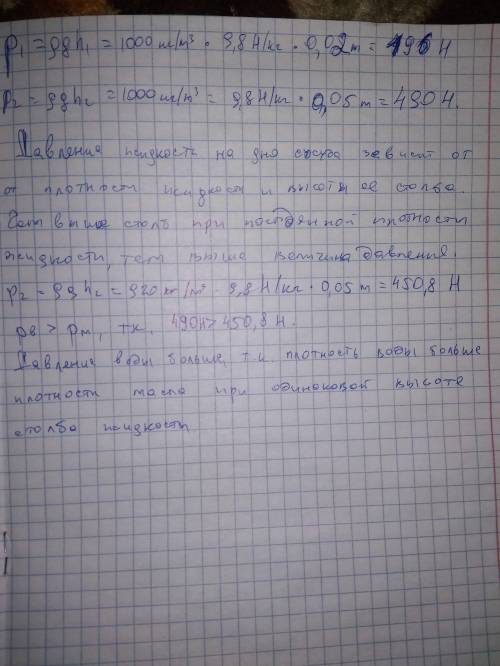 p₁ = ρgh₁ = 1000 кг/м³ · 9,8 Н/кг · 0,02 м = 196 Н
p₂ = ρgh₂ = 1000 кг/м³ = 9,8 Н/кг · 0,05 м = 490 Н.
Давление жидкости на дно сосуда зависит от
от плотности жидкости и высоты ее столба.
Чем выше столб при постоянной плотности
жидкости, тем выше величина давления.
p₂ = ρgh₂ = 920 кг/м³ · 9,8 Н/кг · 0,05 м = 450,8 Н
pв > pм, т.к. 490Н > 450,8 Н.
Давление воды больше, т.к. плотность воды больше
плотности масла при одинаковой высоте
столба жидкости